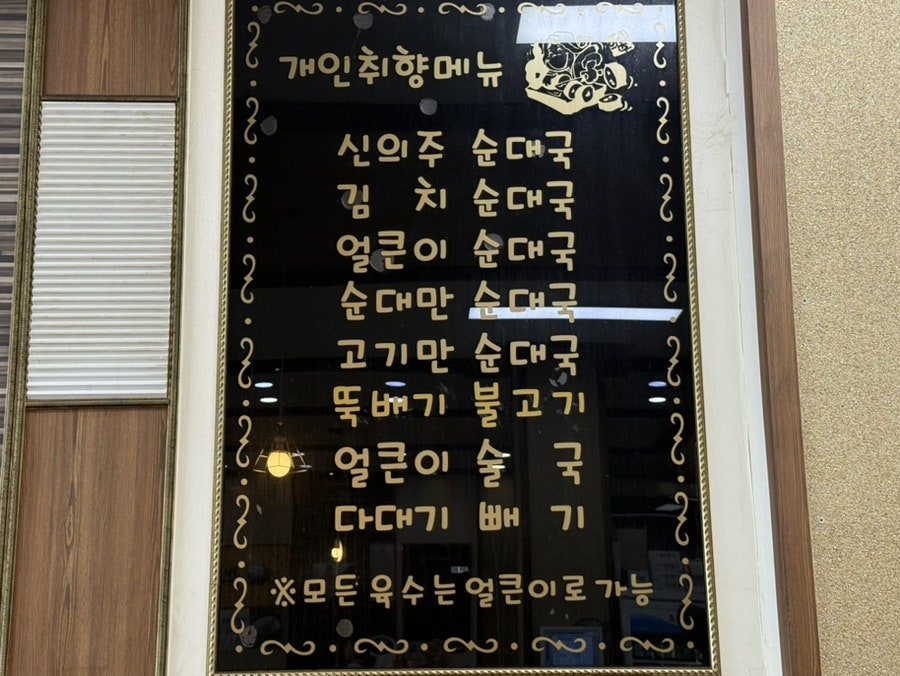 개인취향메뉴
신의주 순대국
김 치 순대국
얼큰이 순대국
순대만 순대국
고기만 순대국
뚝배기 불고기
얼큰이 술 국
다대기 빼 기
※모든 육수는 얼큰이로 가능